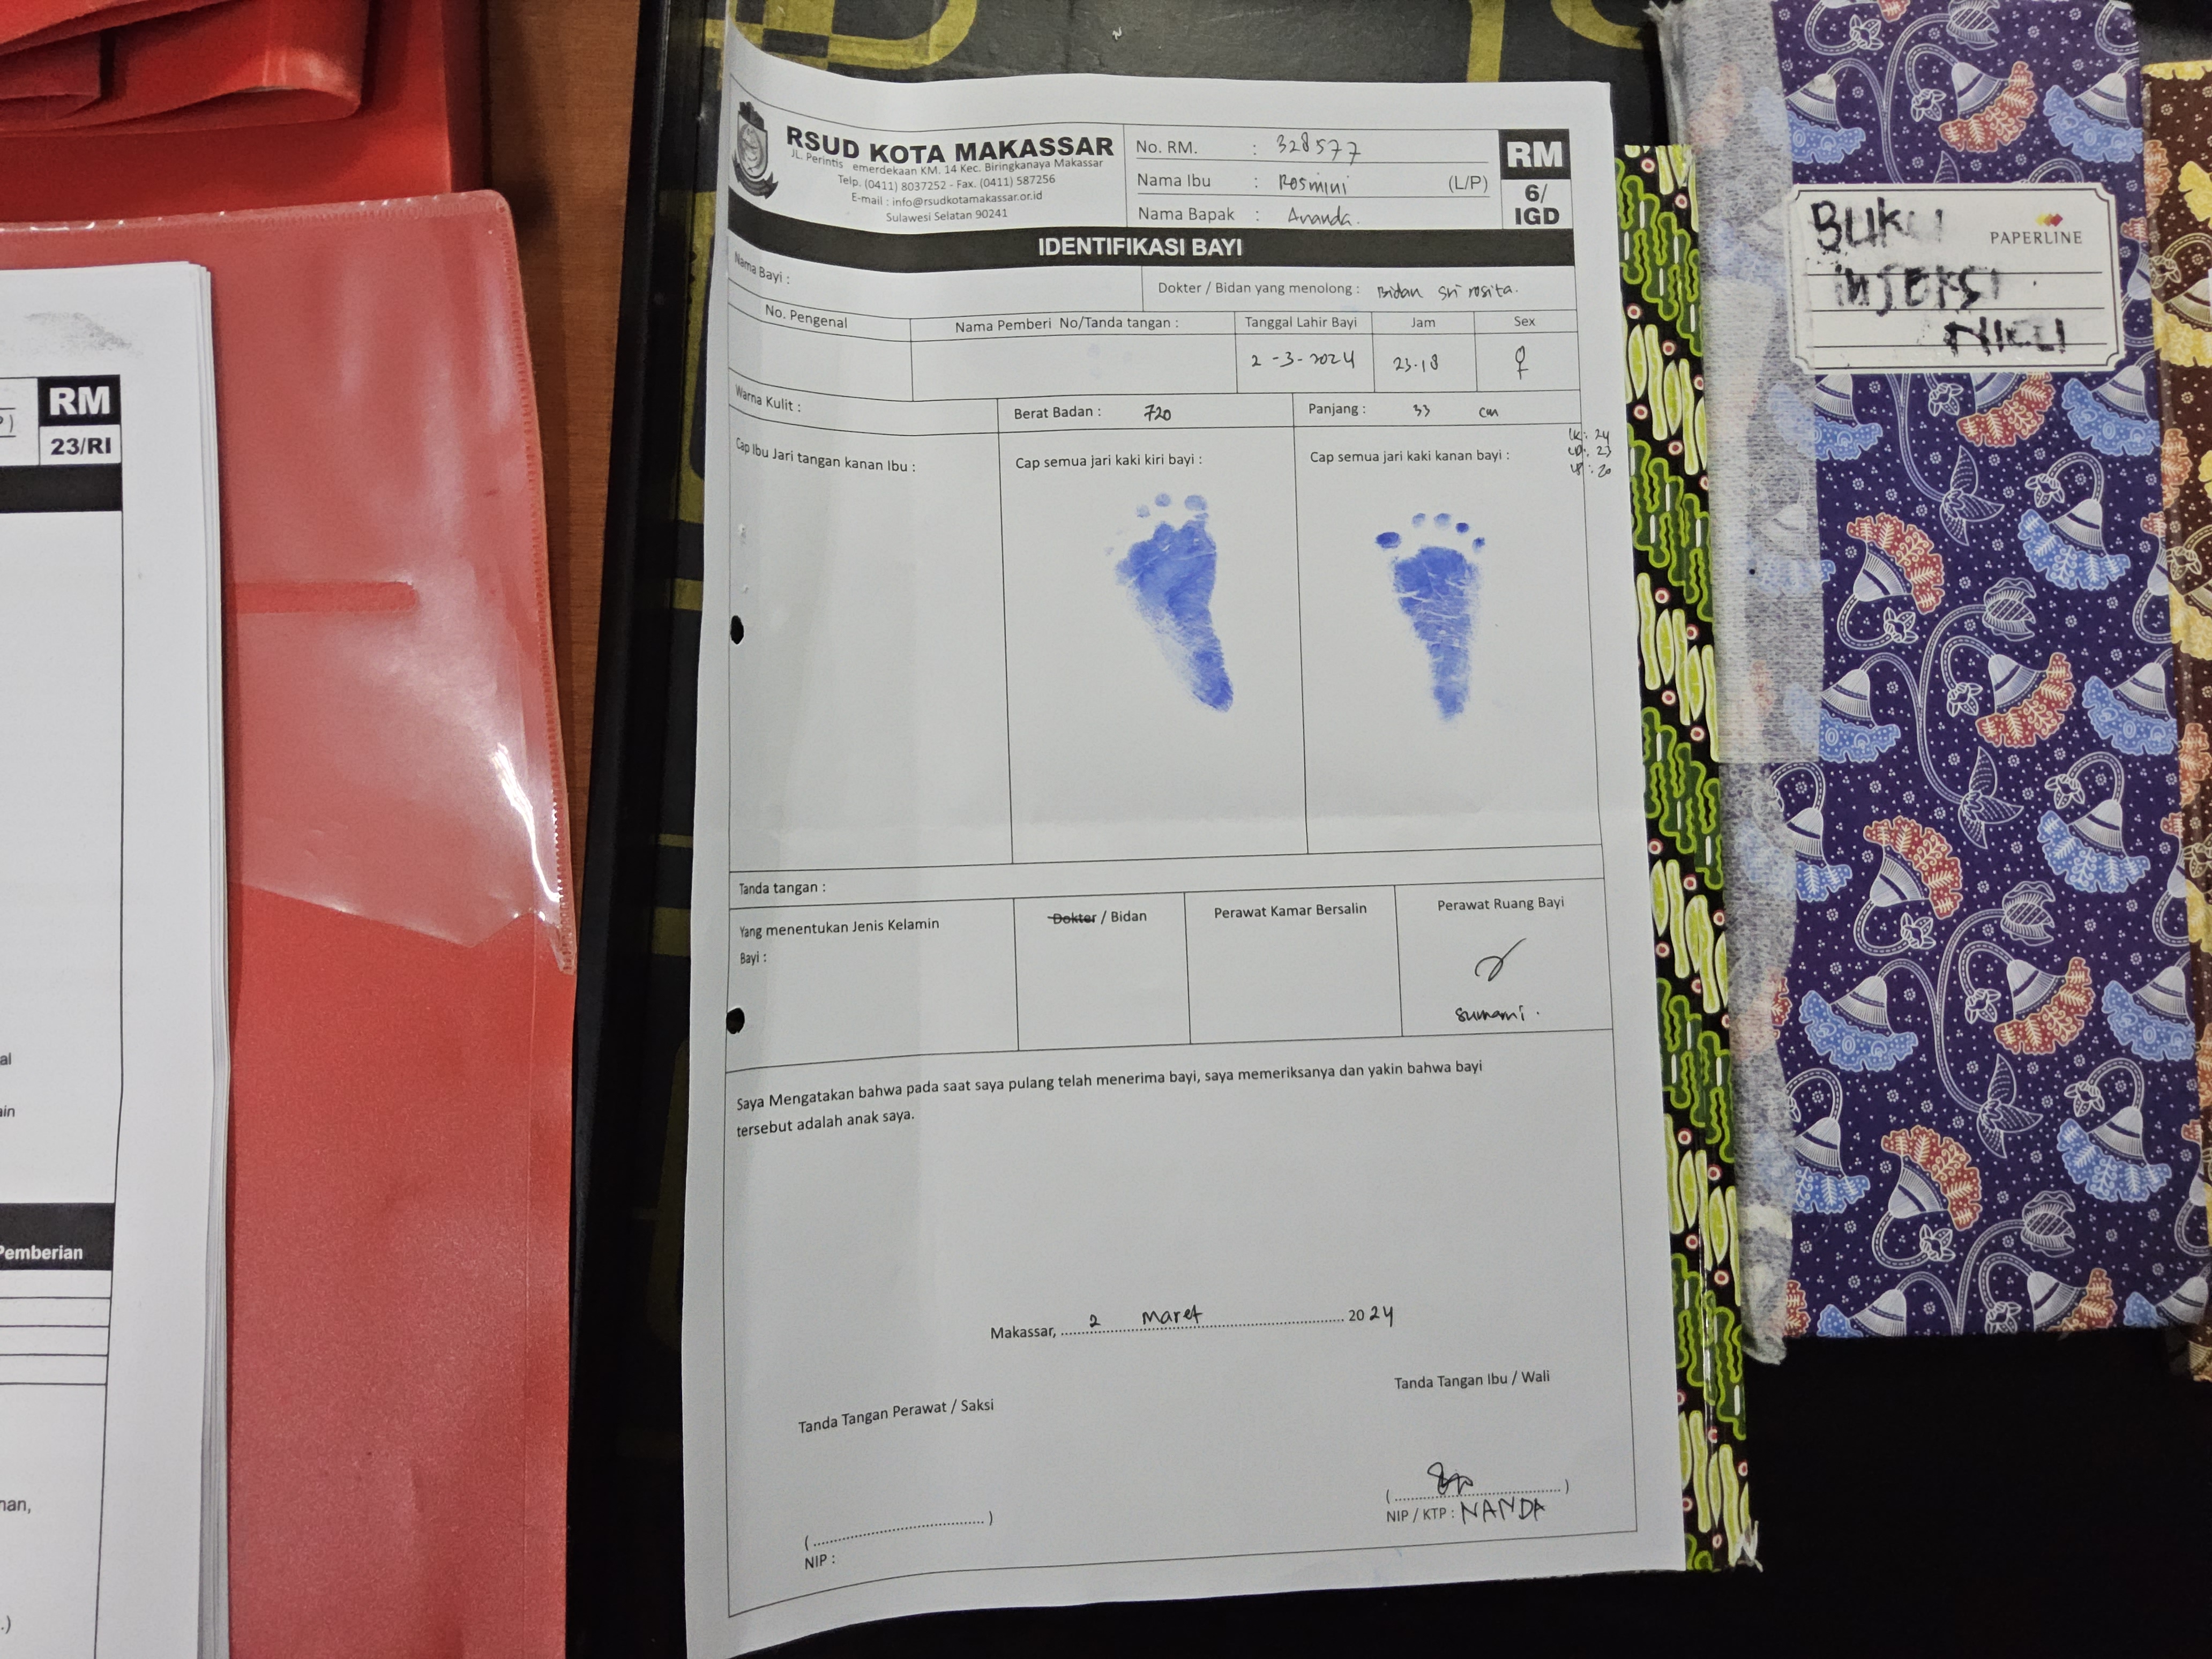 RSUD KOTA MAKASSAR
JL. Perintis emerdekaan KM. 14 Kec. Biringkanaya Makassar
Telp. (0411) 8037252 - Fax. (0411) 587256
E-mail : info@rsudkotamakassar.or.id
Sulawesi Selatan 90241
No. RM. : 328577
Nama Ibu : Rosmini (L/P)
Nama Bapak : Ananda.
RM
6/
IGD
IDENTIFIKASI BAYI
Nama Bayi :
Dokter / Bidan yang menolong : Bidan sri rosita.
No. Pengenal
Nama Pemberi No/Tanda tangan :
Tanggal Lahir Bayi
Jam
Sex
2 -3- 2024
23.18
♀
Warna Kulit :
Berat Badan : 720
Panjang : 33 cm
LK : 24
LD : 23
LP : 20
Cap Ibu Jari tangan kanan Ibu :
Cap semua jari kaki kiri bayi :
Cap semua jari kaki kanan bayi :
Tanda tangan :
Yang menentukan Jenis Kelamin
Bayi :
Dokter / Bidan
Perawat Kamar Bersalin
Perawat Ruang Bayi
Sumarni.
Saya Mengatakan bahwa pada saat saya pulang telah menerima bayi, saya memeriksanya dan yakin bahwa bayi
tersebut adalah anak saya.
Makassar, 2 Maret 2024
Tanda Tangan Perawat / Saksi
Tanda Tangan Ibu / Wali
(.....................................)
NIP :
(.....................................)
NIP / KTP : NANDA
RM
23/RI
al
ain
Pemberian
nan,
.)
BUKU
INJEKSI
NICU
PAPERLINE